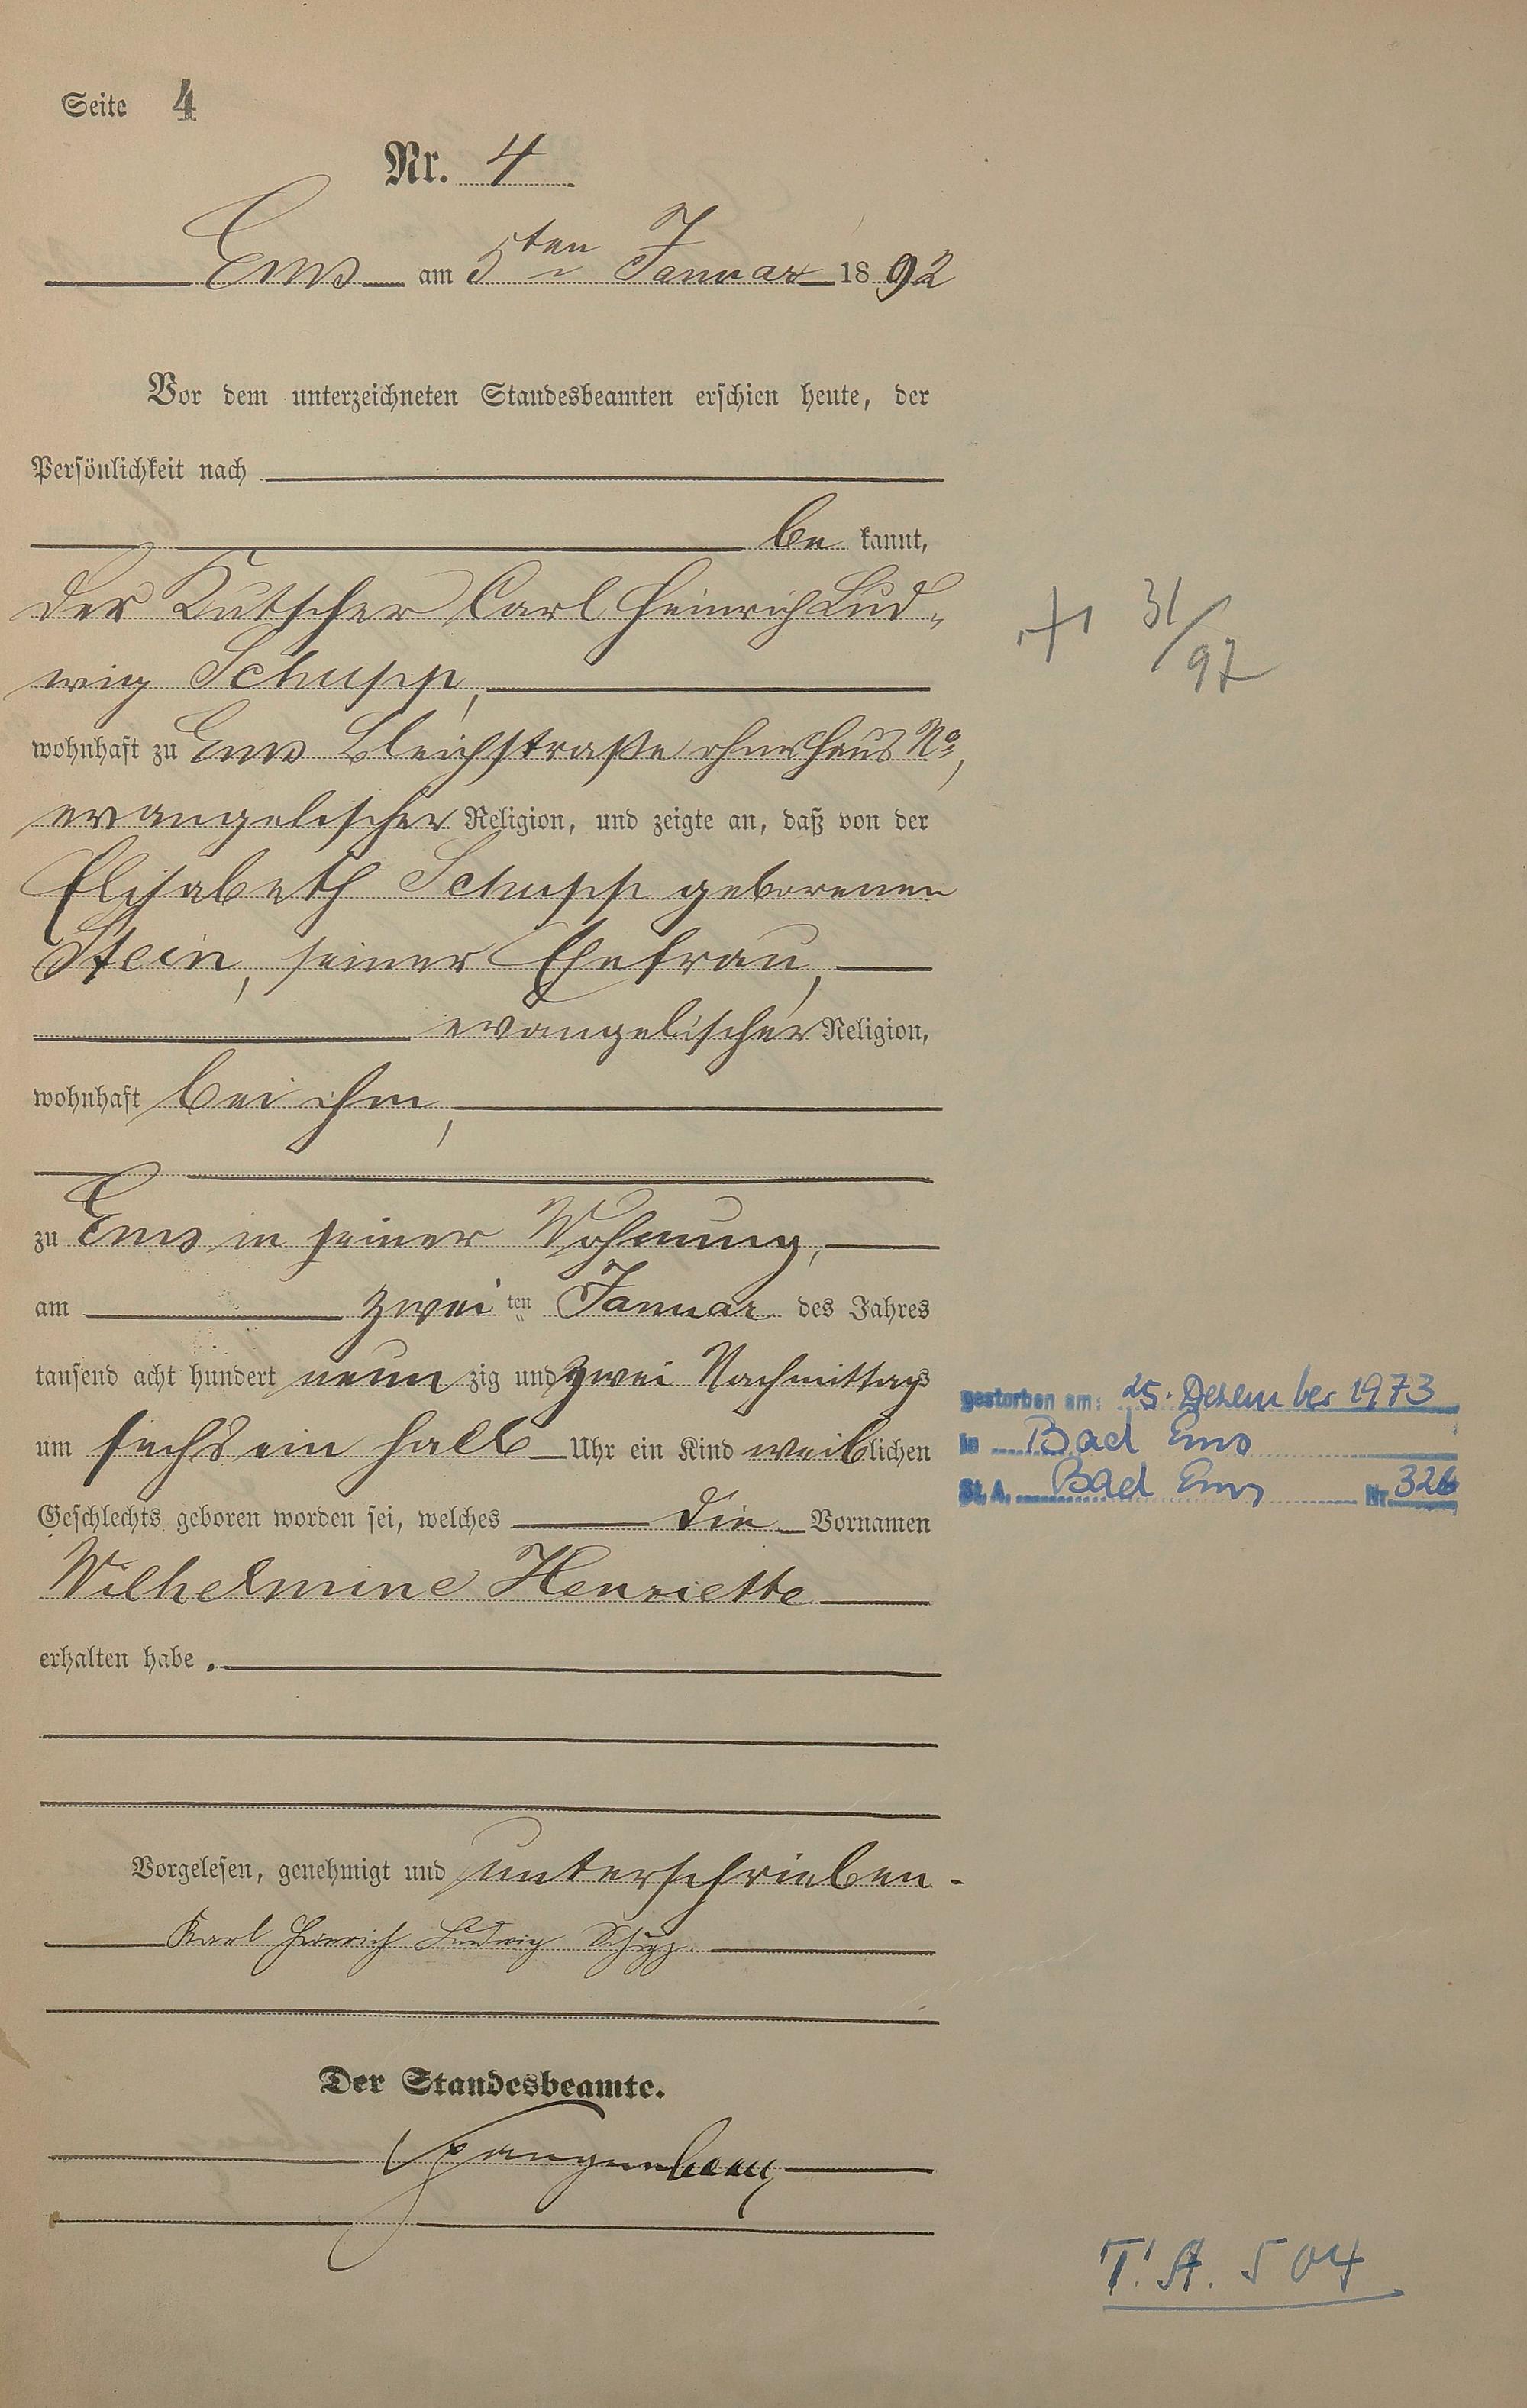 Seite 4
Nr. 4
Ems am 5ten Januar 1892
Vor dem unterzeichneten Standesbeamten erschien heute, der
Persönlichkeit nach
be kannt,
der Kutscher Carl Heinrich Lud-
wig Schupp,
wohnhaft zu Ems Bleichstraße ohne Haus No,
evangelischer Religion, und zeigte an, daß von der
Elisabeth Schupp geborenen
Stein, seiner Ehefrau,
evangelischer Religion,
wohnhaft bei ihm,
zu Ems in seiner Wohnung,
am zwei ten Januar des Jahres
tausend acht hundert neun zig und zwei Nachmittags
um sechs ein halb Uhr ein Kind weiblichen
Geschlechts geboren worden sei, welches die Vornamen
Wilhelmine Henriette
erhalten habe.
Vorgelesen, genehmigt und unterschrieben.
Karl Heinrich Ludwig Schupp
Der Standesbeamte.
31/97
gestorben am: 25. Dezember 1973
in Bad Ems
St. A. Bad Ems Nr. 326
T. A. 504